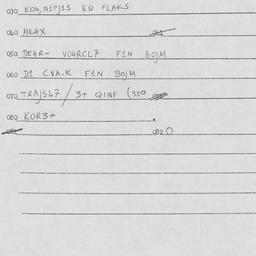 030 KO4,N1PJ1S EQ FLAKS
040 ME4X
050 DE4R- VO4RCL7 F1N BOJM
060 D1 CVA.K F1N BOJM
070 TRAJSL7 / 3+ QINF (339
080 KOR3+
082 O